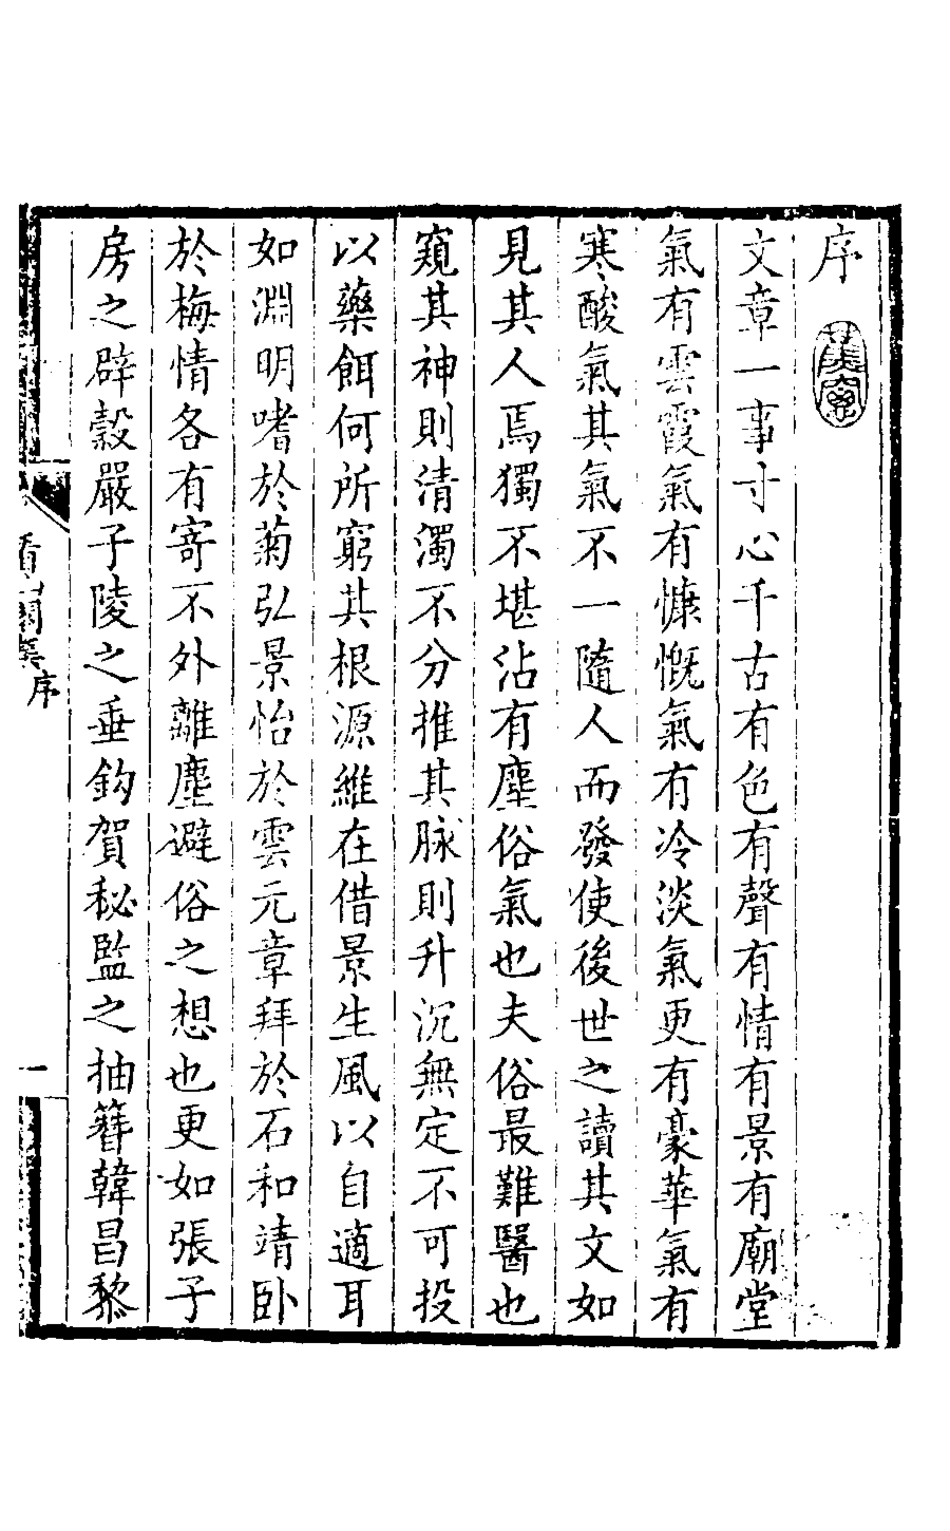 序
文章一事寸心千古有色有聲有情有景有廟堂
氣有雲霞氣有慷慨氣有冷淡氣更有豪華氣有
寒酸氣其氣不一隨人而發使後世之讀其文如
見其人焉獨不堪沾有塵俗氣也夫俗最難醫也
窺其神則清濁不分推其脉則升沉無定不可投
以藥餌何所窮其根源維在借景生風以自適耳
如淵明嗜於菊弘景怡於雲元章拜於石和靖卧
於梅情各有寄不外離塵避俗之想也更如張子
房之辟穀嚴子陵之垂鈎賀秘監之抽簪韓昌黎
序
一